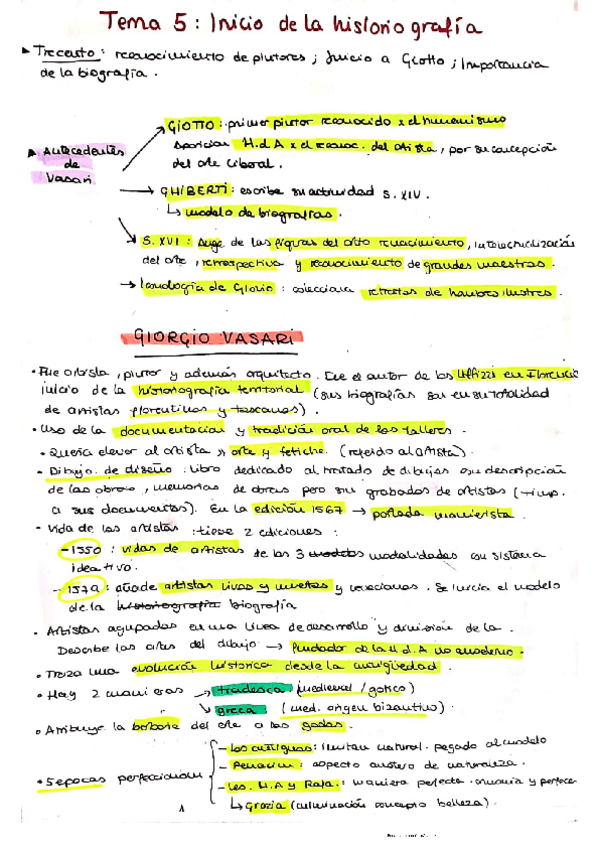 Tema 5: Inicio de la historiografía
▸ Trecento: reconocimiento de pintores; Inicio a Giotto; Importancia
de la biografía.
GIOTTO: primer pintor reconocido x el humanismo
▸ Antecedentes
aparición H.d A x el reconoc. del artista, por su concepción
de
del arte liberal.
Vasari
→ GHIBERTI: escribe su actividad S. XIV.
↳ modelo de biografías.
S. XVI: Auge de las figuras del arto renacimiento, intelectualización
del arte, retrospectiva y reconocimiento de grandes maestros.
→ de Giovio: colecciona retratos de hombres ilustres.
GIORGIO VASARI
• Fue artista, pintor y además arquitecto. Fue el autor de los Uffizi en Florencia
inicio de la historiografía territorial (sus biografías son en su totalidad
de artistas florentinos y toscanos).
• Uso de la documentación y tradición oral de los talleres.
• Quería elevar al artista » arte y fetiche. (referido al artista).
• Dibujo. de diseño: libro dedicado al tratado de dibujos o su descripción
de las obras, memorias de obras pero sin grabados de artistas (+ imp.
a sus documentos). En la edición 1567 → portada manierista.
• Vida de los artistas: tiene 2 ediciones:
- 1550: vidas de artistas de las 3 modelos modalidades con sistema
ideativo.
- 157a: añade artistas vivos y muertos y venecianos. Se inicia el modelo
de la historiografía biografía
• Artistas agrupados en una línea de desarrollo y división de la.
Describe las artes del dibujo → fundador de la H.d.A no moderno.
• Traza una evolución histórica desde la antigüedad.
• Hay 2 manieras → tradesca: (medieval / gótico)
↘ greca: (med. origen bizantino)
• Atribuye la barbarie del arte a los godos.
- los antiguos: imitan natural. pegado al modelo
• 5 epocas perfeccionan
- : aspecto austero de naturaleza.
- Leo. M.A y Rafa.: maniera perfecta. armonía y perfecc
↳ Grazia (culminación concepto belleza).
1